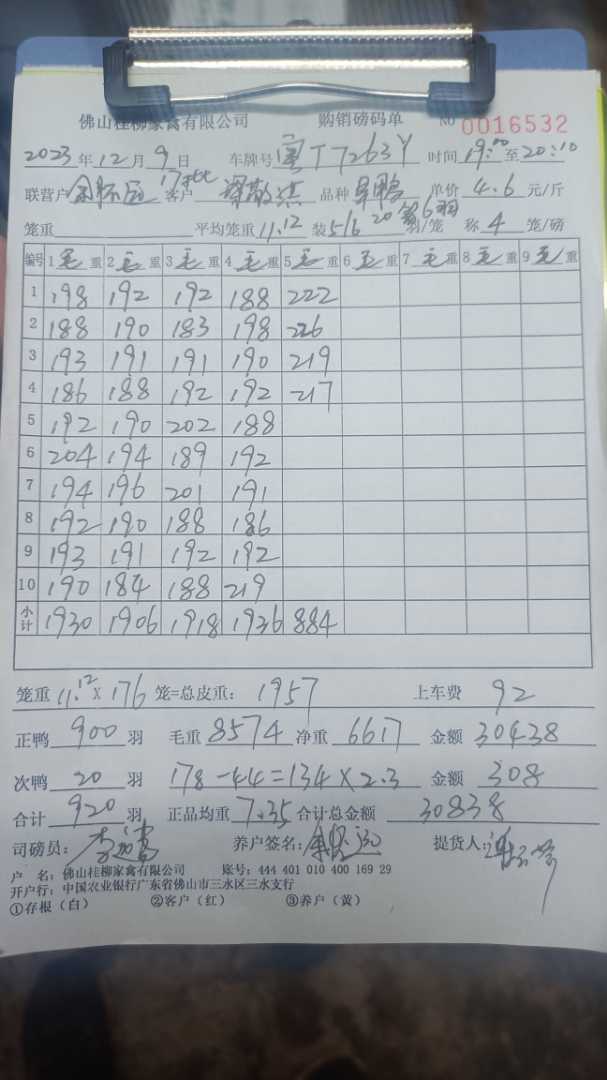 佛山桂柳家禽有限公司 购销磅码单 No 0016532
2023年12月9日 车牌号 粤T7263Y 时间 19:00至20:10
联营户 客户 品种 单价 4.6 元/斤
笼重 平均笼重 11.12 装 5/6 20 6羽 羽/笼 称 4 笼/磅
编号 1毛重 2毛重 3毛重 4毛重 5毛重 6毛重 7毛重 8毛重 9毛重
1 198 192 192 188 222
2 188 190 183 198 226
3 193 191 191 190 219
4 186 188 192 192 217
5 192 190 202 188
6 204 194 189 192
7 194 196 201 191
8 192 190 188 186
9 193 191 192 192
10 190 184 188 219
小计 1930 1906 1918 1936 884
笼重 11.12 X 176 笼=总皮重: 1957 上车费 92
正鸭 900 羽 毛重 8574 净重 6617 金额 30438
次鸭 20 羽 178-44=134×2.3 金额 308
合计 920 羽 正品均重 7.35 合计总金额 30838
司磅员: 养户签名: 提货人:
户 名: 佛山桂柳家禽有限公司 账号: 444 401 010 400 169 29
开户行: 中国农业银行广东省佛山市三水区三水支行
①存根（白） ②客户（红） ③养户（黄）